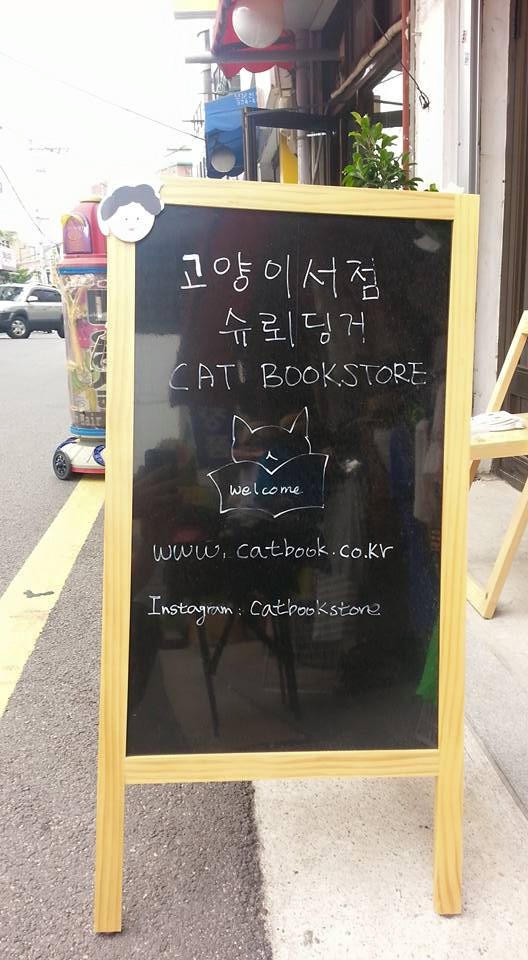 고양이서점
슈뢰딩거
CAT BOOKSTORE
welcome
www.catbook.co.kr
Instagram: catbookstore